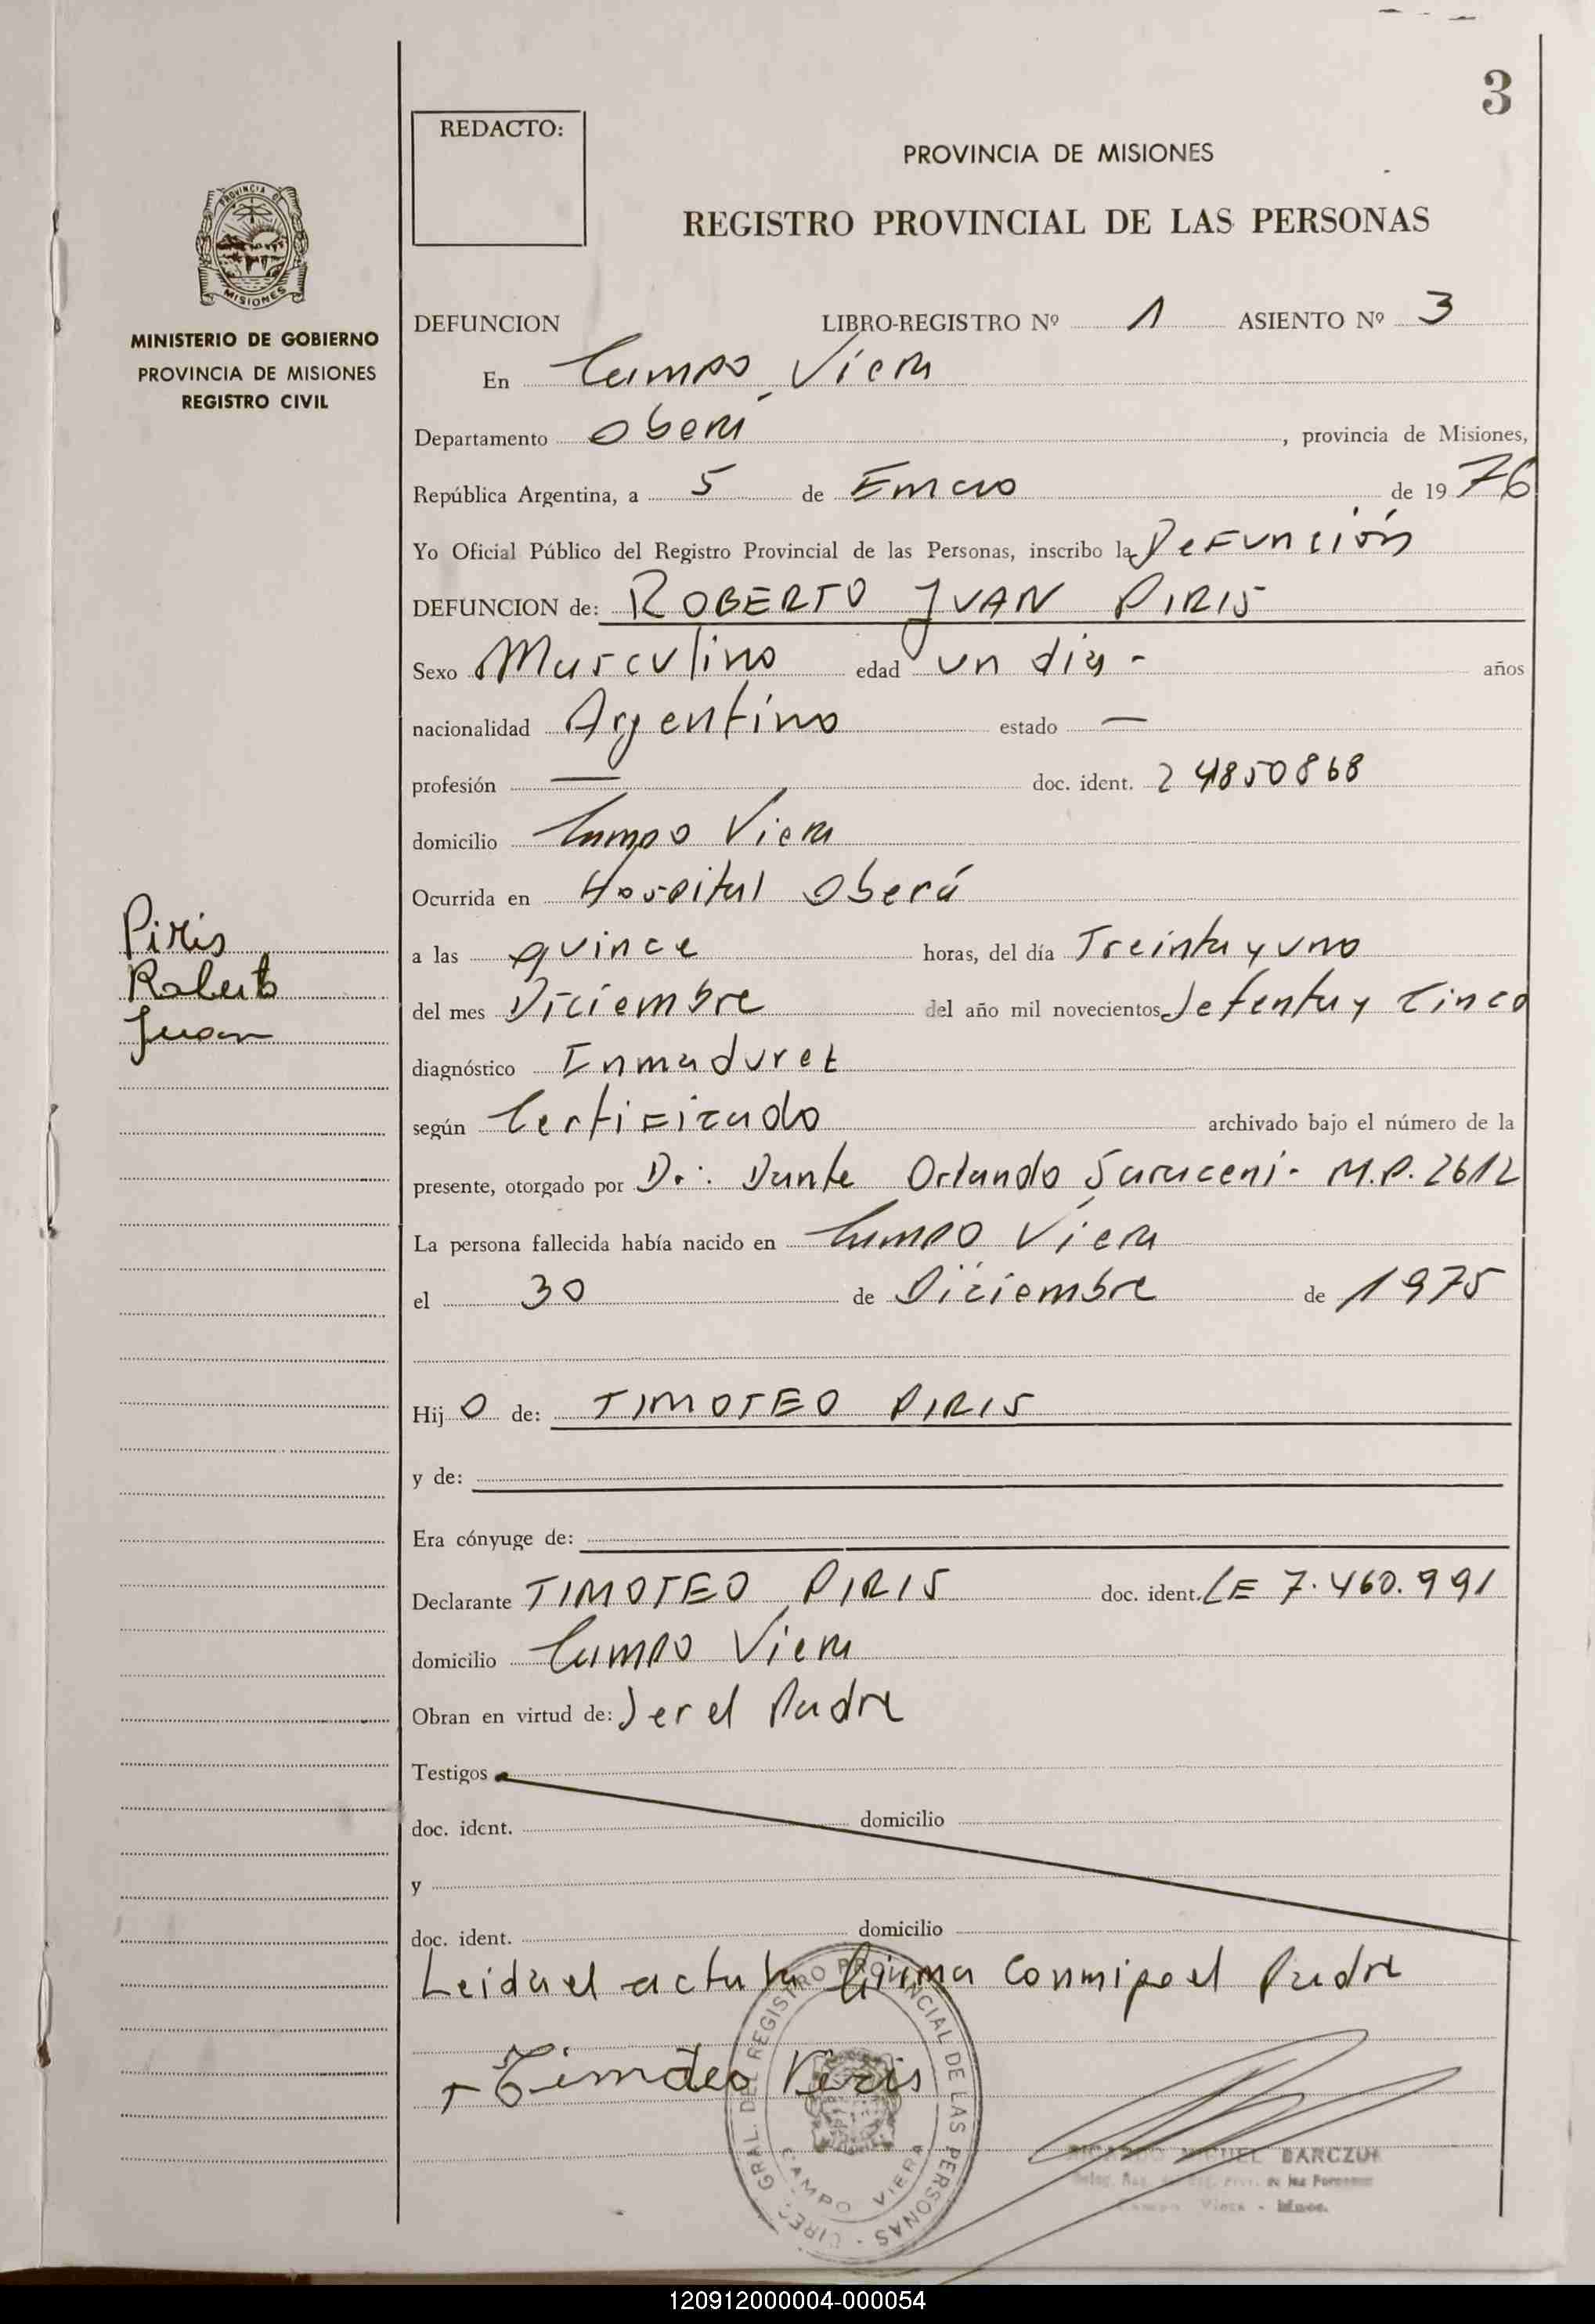 3
REDACTO:
PROVINCIA DE MISIONES
REGISTRO PROVINCIAL DE LAS PERSONAS
PROVINCIA D
MISIONES
MINISTERIO DE GOBIERNO
PROVINCIA DE MISIONES
REGISTRO CIVIL
DEFUNCION LIBRO-REGISTRO Nº 1 ASIENTO Nº 3
En Campo Viera
Departamento Oberá, provincia de Misiones,
República Argentina, a 5 de Enero de 1976
Yo Oficial Público del Registro Provincial de las Personas, inscribo la Defunción
DEFUNCION de: ROBERTO JUAN PIRIS
Sexo Masculino edad un dia - años
nacionalidad Argentino estado —
profesión — doc. ident. 24850868
domicilio Campo Viera
Ocurrida en Hospital Oberá
Piris
Roberto
Juan
a las quince horas, del día Treinta y uno
del mes Diciembre del año mil novecientos Setenta y Cinco
diagnóstico Inmadurez
según Certificado archivado bajo el número de la
presente, otorgado por Dr: Dante Orlando Saraceni - M.P. 2612
La persona fallecida había nacido en Campo Viera
el 30 de Diciembre de 1975
Hijo de: TIMOTEO PIRIS
y de:
Era cónyuge de:
Declarante TIMOTEO PIRIS doc. ident. LE 7.460.991
domicilio Campo Viera
Obran en virtud de: Ser el Padre
Testigos
doc. ident. domicilio
y
doc. ident. domicilio
Leida el acta la firma conmigo el Padre
Timoteo Piris
DIREC. GRAL. DEL REGISTRO PROVINCIAL DE LAS PERSONAS -
CAMPO VIERA
RICARDO MIGUEL BARCZUK
de las Personas
Campo Viera - Mnes.
120912000004-000054